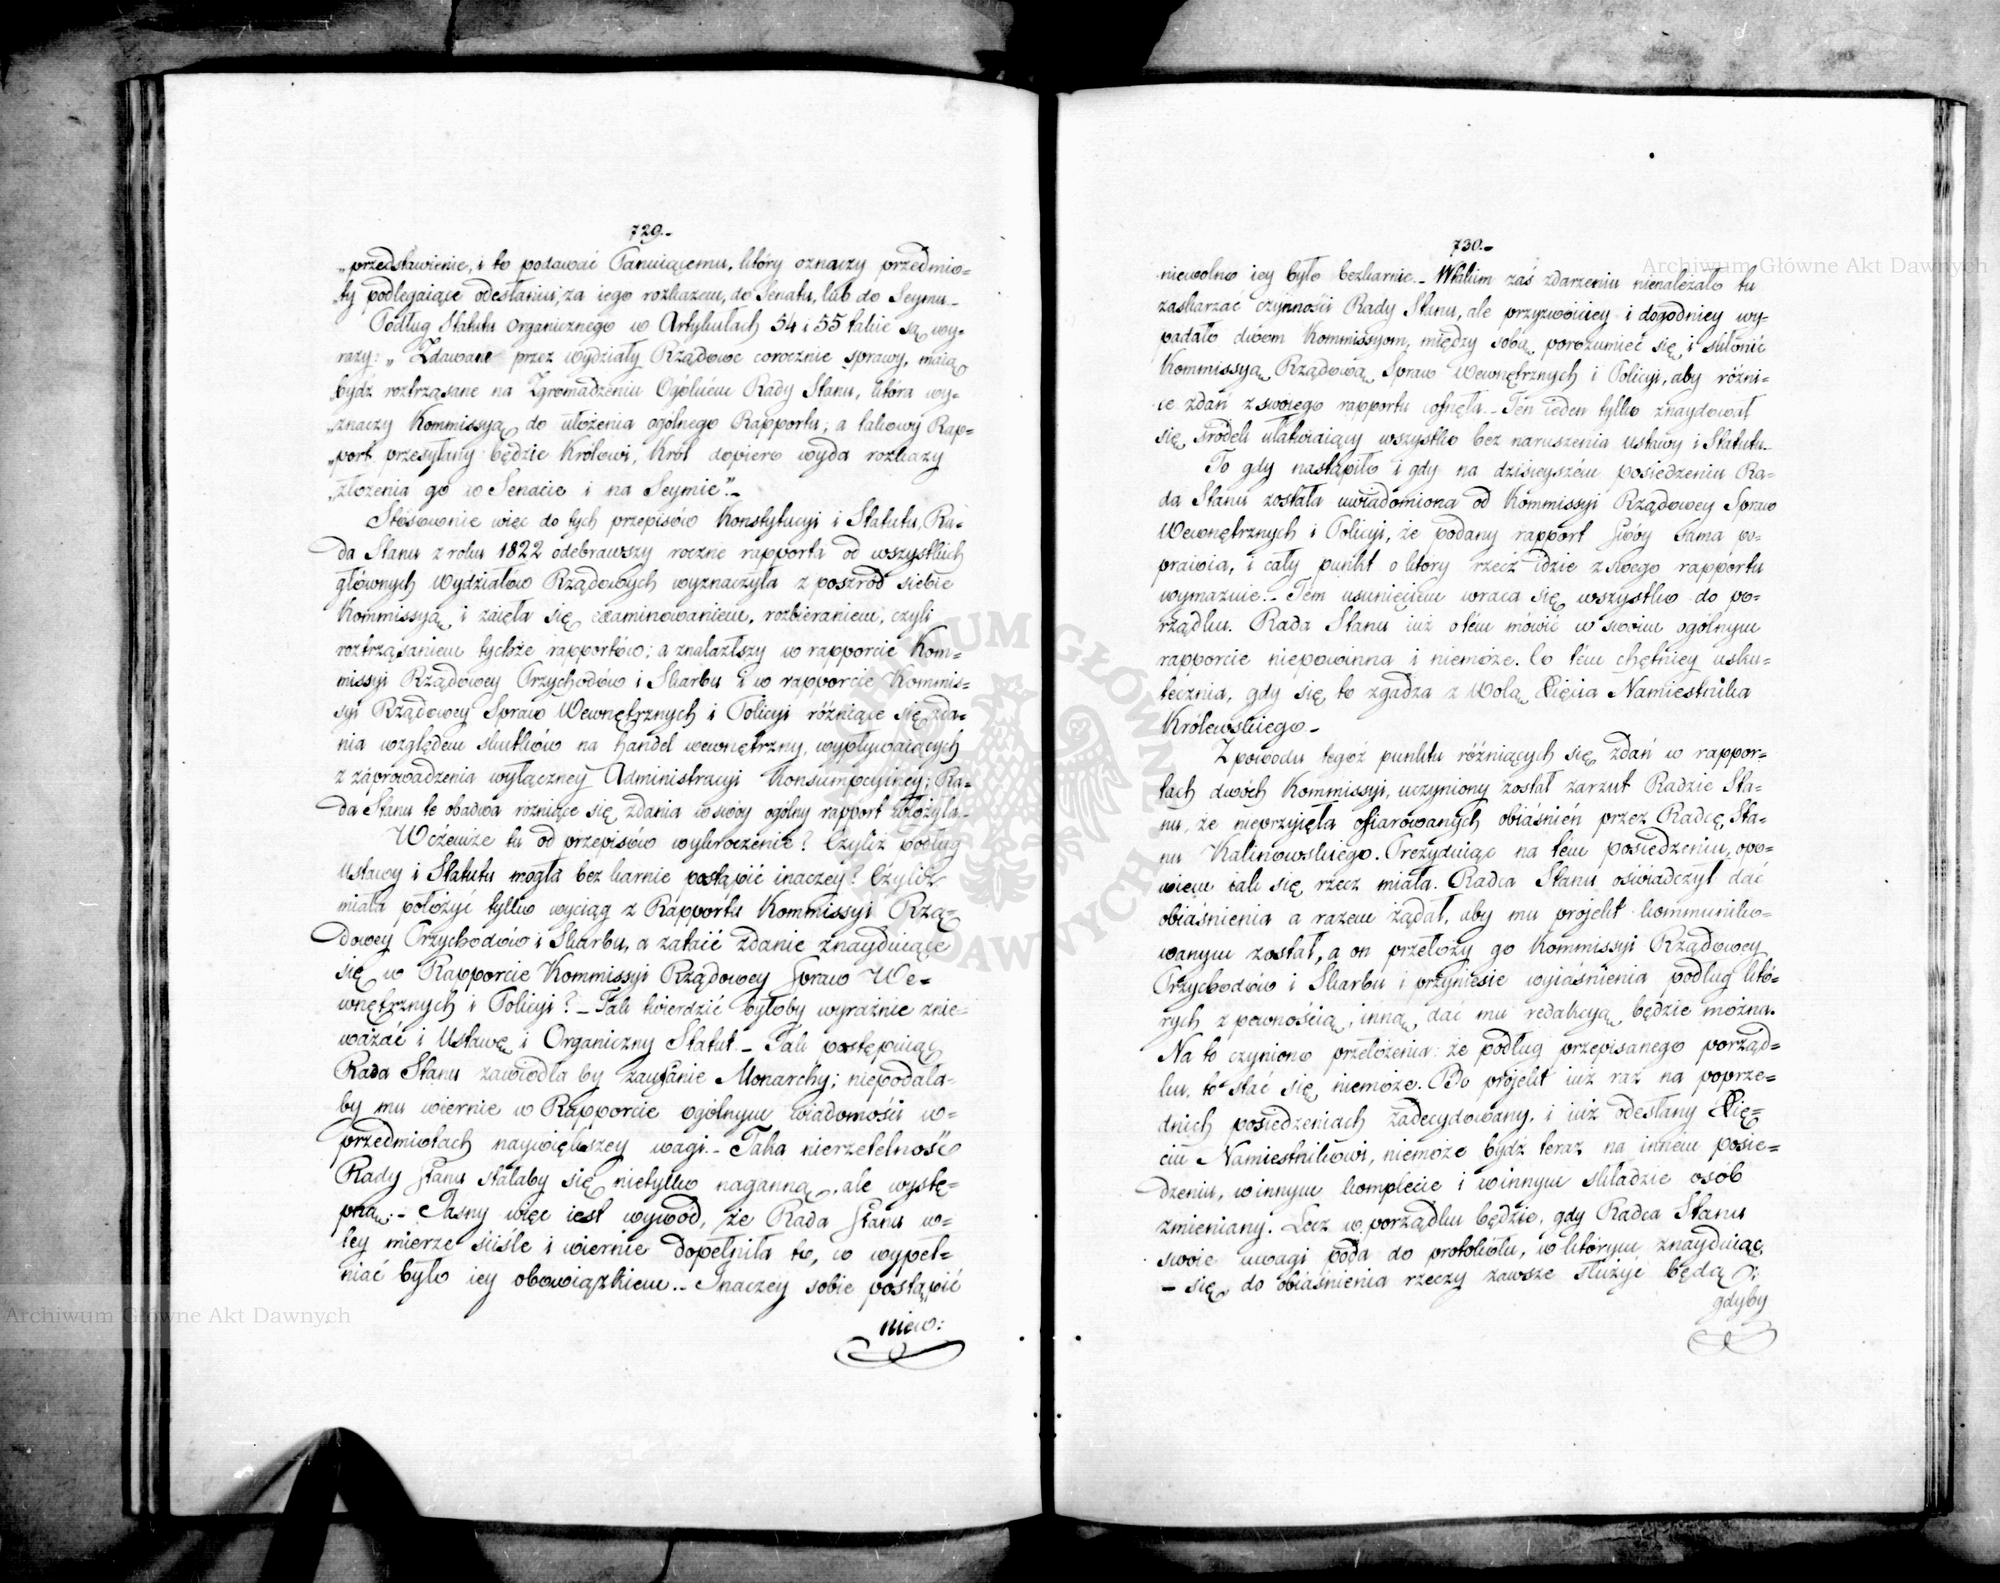 729.-
„przedstawienie, i to podawać Panuiącemu, który oznaczy przedmio-
„ty podlegaiące odesłaniu, za iego rozkazem, do Senatu, lub do Seymu.-
Podług Statutu Organicznego w Artykułach 54 i 55 takie są wy-
razy: „Zdawane przez wydziały Rządowe corocznie sprawy, maią
bydź roztrząsane na Zgromadzeniu Ogólném Rady Stanu, która wy-
„znaczy Kommissyą do ułożenia ogólnego Rapportu; a takowy Rap-
„port przesyłany będzie Królowi, Król dopiero wyda rozkazy
„złożenia go w Senacie i na Seymie”.-
Stosownie więc do tych przepisów Konstytucyi i Statutu, Ra-
da Stanu z roku 1822 odebrawszy roczne rapporta od wszystkich
głównych Wydziałów Rządowych wyznaczyła z pośrzód siebie
Kommissyą, i zaięła się examinowaniem, rozbieraniem, czyli
roztrząsaniem tychże rapportów; a znalazłszy w rapporcie Kom-
missyi Rządowey Przychodów i Skarbu i w rapporcie Kommis-
syi Rządowey Spraw Wewnętrznych i Policyi różniące się zda-
nia względem skutków na handel wewnętrzny, wypływaiących
z zaprowadzenia wyłączney Administracyi Konsumpcyiney; Ra-
da Stanu te obadwa rożniące się zdania w swóy ogólny rapport włożyła.-
W czémże tu od przepisów wykroczenie? Czyliż podług
Ustawy i Statutu mogła bezkarnie postąpić inaczey? Czyliż
miała położyć tylko wyciąg z Rapportu Kommissyi Rzą-
dowey Przychodów i Skarbu, a zataić zdanie znayduiące
się w Rapporcie Kommissyi Rządowey Spraw We-
wnętrznych i Policyi? - Tak twierdzić byłoby wyraźnie znie-
ważać i Ustawę i Organiczny Statut.- Tak postępuiąc
Rada Stanu zawiodła by zaufanie Monarchy; niepodała-
by mu wiernie w Rapporcie ogólnym wiadomości w-
przedmiotach naywiększey wagi.- Taka nierzetelność
Rady Stanu stałaby się nietylko naganną, ale wystę-
pną.- Jasny więc iest wywód, że Rada Stanu w-
tey mierze ściśle i wiernie dopełniła to, co wypeł-
niać było iey obowiązkiem.- Inaczey sobie postąpić
niew:
730.-
niewolno iey było bezkarnie.- Wtakim zaś zdarzeniu nienależało tu
zaskarzać czynności Rady Stanu, ale przyzwoiciey i dogodniey wy-
padało dwom Kommissyom, między sobą porozumieć się, i skłonić
Kommissyą Rządową Spraw Wewnętrznych i Policyi, aby różni-
ce zdań z swoiego rapportu cofnęła.- Ten ieden tylko znaydował
się środek ułatwiaiący wszystko bez naruszenia ustawy i Statutu.-
To gdy nastąpiło i gdy na dzisieyszém posiedzeniu Ra-
da Stanu została uwiadomiona od Kommissyi Rządowey Spraw
Wewnętrznych i Policyi, że podany rapport swóy sama po-
prawia, i cały punkt o który rzecz idzie z swego rapportu
wymazuie.- Tém usunięciem wraca się wszystko do po-
rządku. Rada Stanu iuż o tém mówić w swoim ogólnym
rapporcie niepowinna i niemoże. Co tém chętniey usku-
tecznia, gdy się to zgadza z Wolą Xięcia Namiestnika
Królewskiego.-
Z powodu tegoż punktu różniących się zdań w rappor-
tach dwóch Kommissyi, uczyniony został zarzut Radzie Sta-
nu, że nieprzyięła ofiarowanych obiaśnień przez Radcę Sta-
nu Kalinowskiego. Prezyduiąc na tém posiedzeniu, opo-
wiem iak się rzecz miała. Radca Stanu oświadczył dać
obiaśnienia a razem żądał, aby mu projekt kommuniko-
wanym został, a on przełoży go Kommissyi Rządowey
Przychodów i Skarbu i przyniesie wyiaśnienia podług któ-
rych z pewnością, inną dać mu redakcyą będzie można.
Na to czyniono przełożenia: że podług przepisanego porząd-
ku, to stać się niemoże. Bo projekt iuż raz na poprze-
dnich posiedzeniach zadecydowany, i iuż odesłany Xię-
ciu Namiestnikowi, niemoże bydź teraz na inném posie-
dzeniu, w innym komplecie i w innym składzie osób
zmieniany. Lecz w porządku będzie, gdy Radca Stanu
swoie uwagi poda do protokółu, w którym znayduiąc
- się, do obiaśnienia rzeczy zawsze służyć będą;
gdyby
Archiwum Główne Akt Dawnych
Archiwum Główne Akt Dawnych
ARCHIWUM GŁÓWNE AKT DAWNYCH